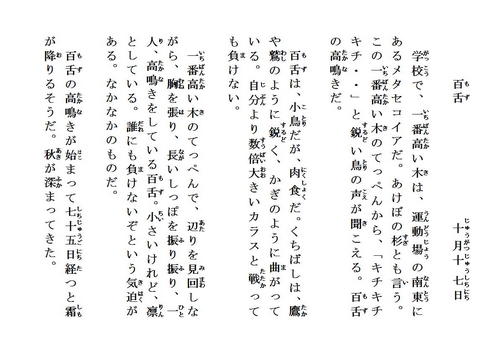 百舌
十月十七日
学校で、一番高い木は、運動場の南東に
あるメタセコイアだ。あけぼの杉とも言う。
この一番高い木のてっぺんから、「キチキチ
キチ・・」と鋭い鳥の声が聞こえる。百舌
の高鳴きだ。
百舌は、小鳥だが、肉食だ。くちばしは、鷹
や鷲のように鋭く、かぎのように曲がって
いる。自分より数倍大きいカラスと戦って
も負けない。
一番高い木のてっぺんで、辺りを見回しな
がら、胸を張り、長いしっぽを振り振り、一
人、高鳴きをしている百舌。小さいけれど、凛
としている。誰にも負けないぞという気迫が
ある。なかなかのものだ。
百舌の高鳴きが始まって七十五日経つと霜
が降りるそうだ。秋が深まってきた。